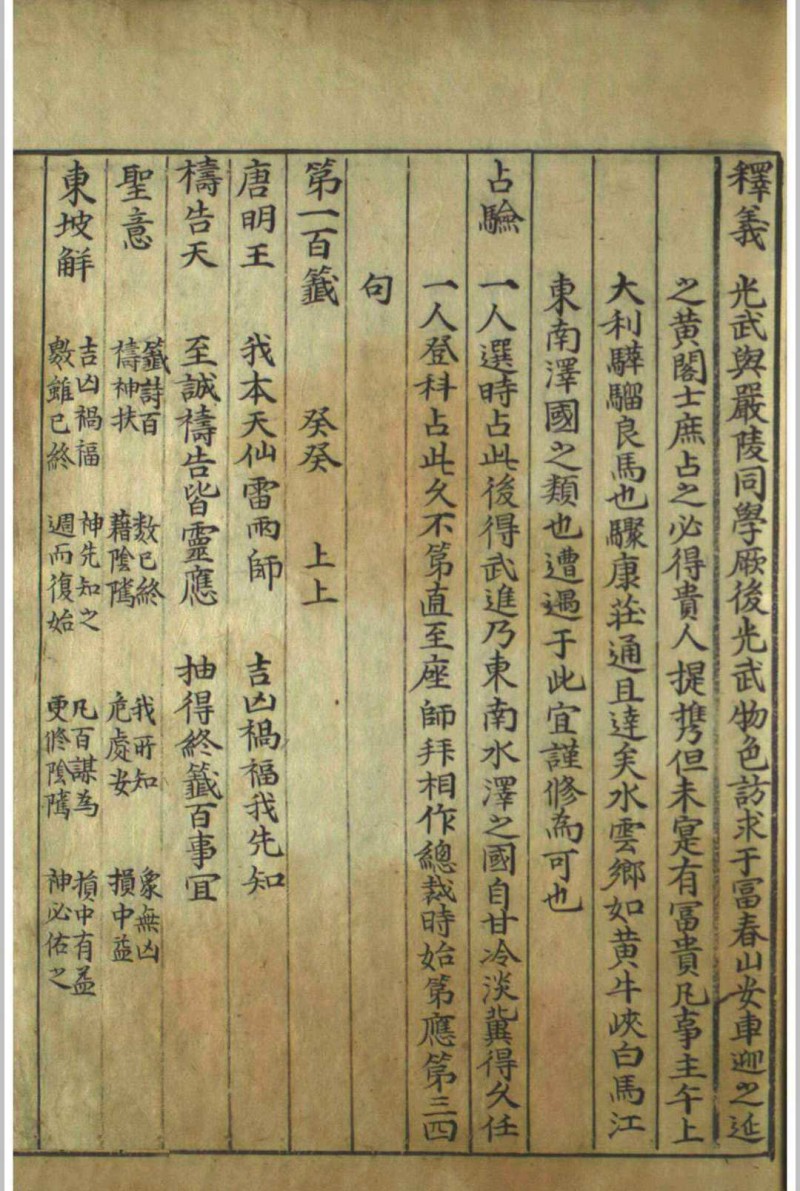 釋義　光武與嚴陵同學厥後光武物色訪求于富春山安車迎之延
之黄閣士庶占之必得貴人提携但未寔有富貴凡事主午上
大利驊騮良馬也驟康莊通且達矣水雲鄉如黄牛峽白馬江
東南澤國之類也遭遇于此宜謹修為可也
占驗　一人選時占此後得武進乃東南水澤之國自甘冷淡冀得久任
一人登科占此久不第直至座師拜相作總裁時始第應第三四
句
第一百籤　癸癸　上上
唐明王　我本天仙雷雨師　吉凶禍福我先知
禱告天　至誠禱告皆靈應　抽得終籤百事宜
聖意　籤詩百　數已終　我所知　象無凶
禱神扶　藉陰隲　危處安　損中益
東坡解　吉凶禍福　神先知之　凡百謀為　損中有益
數雖已終　週而復始　更修陰隲　神必佑之